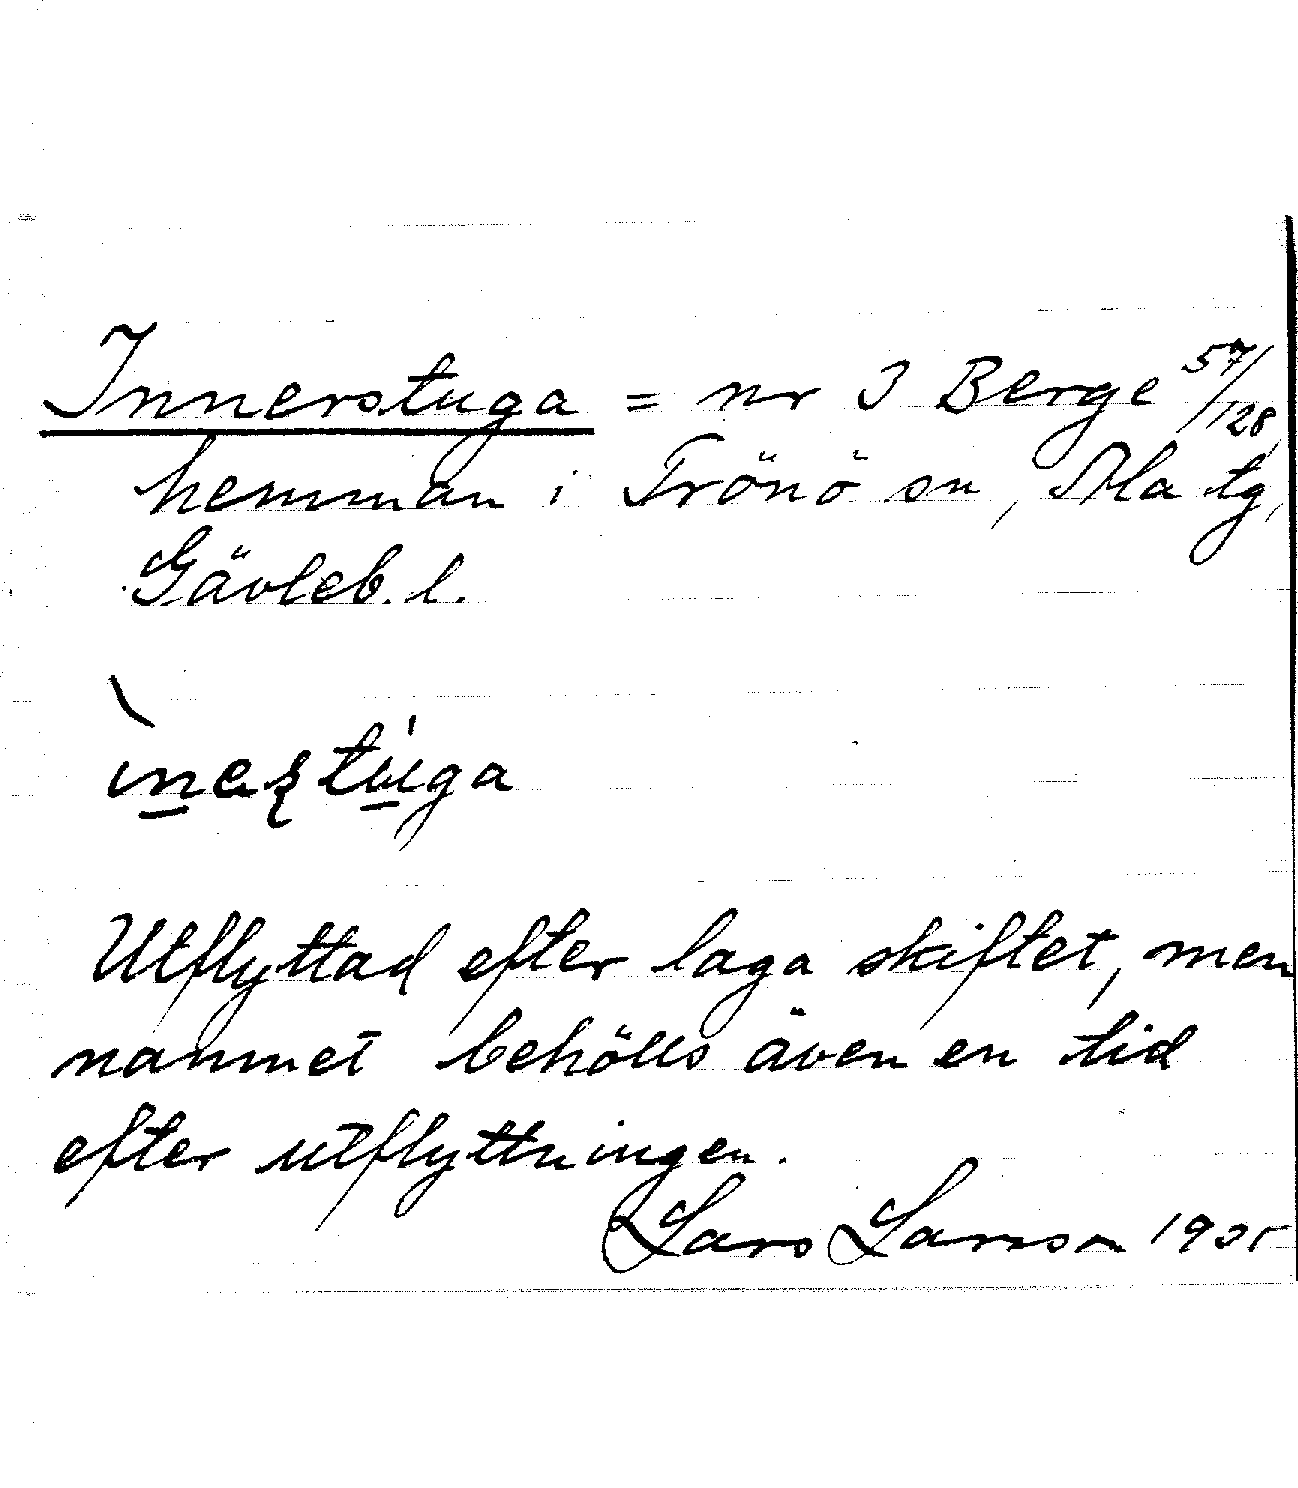 Innerstuga = nr 3 Berge 57/128
hemman i Trönö sn, Ala tg,
Gävleb. l.
Utflyttad efter laga skiftet, men
namnet behölls även en tid
efter utflyttningen.
Lars Larsson 1935